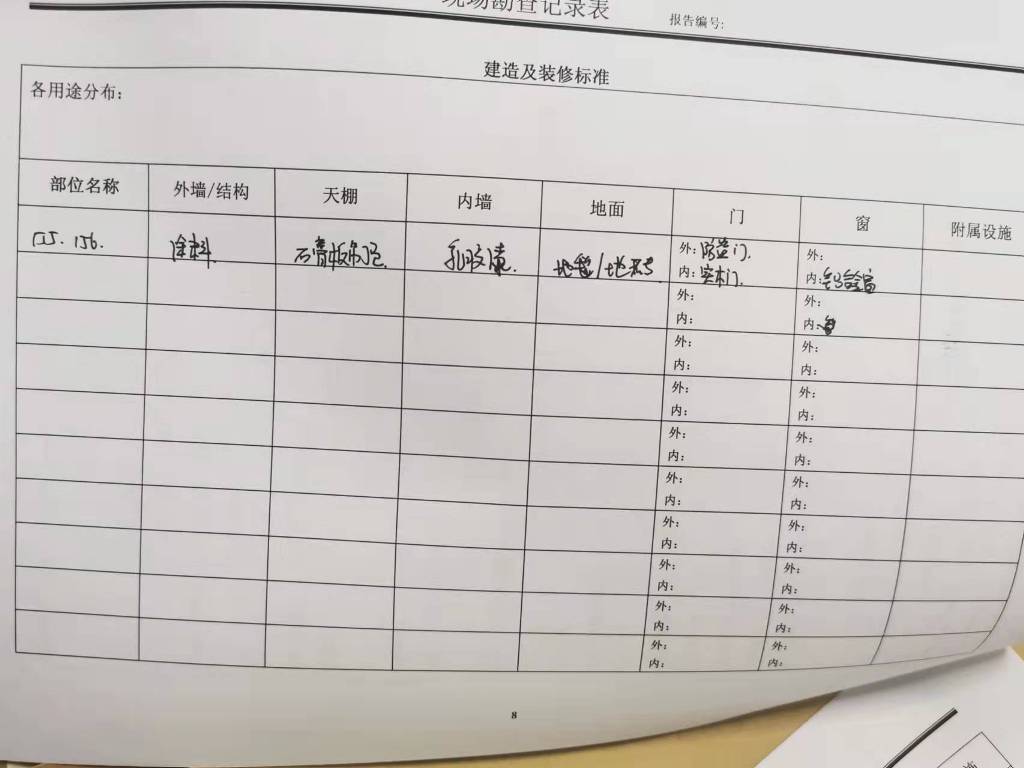 现场勘查记录表
报告编号:
建造及装修标准
各用途分布:
部位名称 外墙/结构 天棚 内墙 地面 门 窗 附属设施
155. 156. 涂料 石膏板吊顶 乳胶漆. 地毯/地砖 外: 防盗门. 外:
内: 实木门. 内: 铝合金窗
外: 外:
内: 内:
外: 外:
内: 内:
外: 外:
内: 内:
外: 外:
内: 内:
外: 外:
内: 内:
外: 外:
内: 内:
外: 外:
内: 内:
外: 外:
内: 内:
外: 外:
内: 内:
8